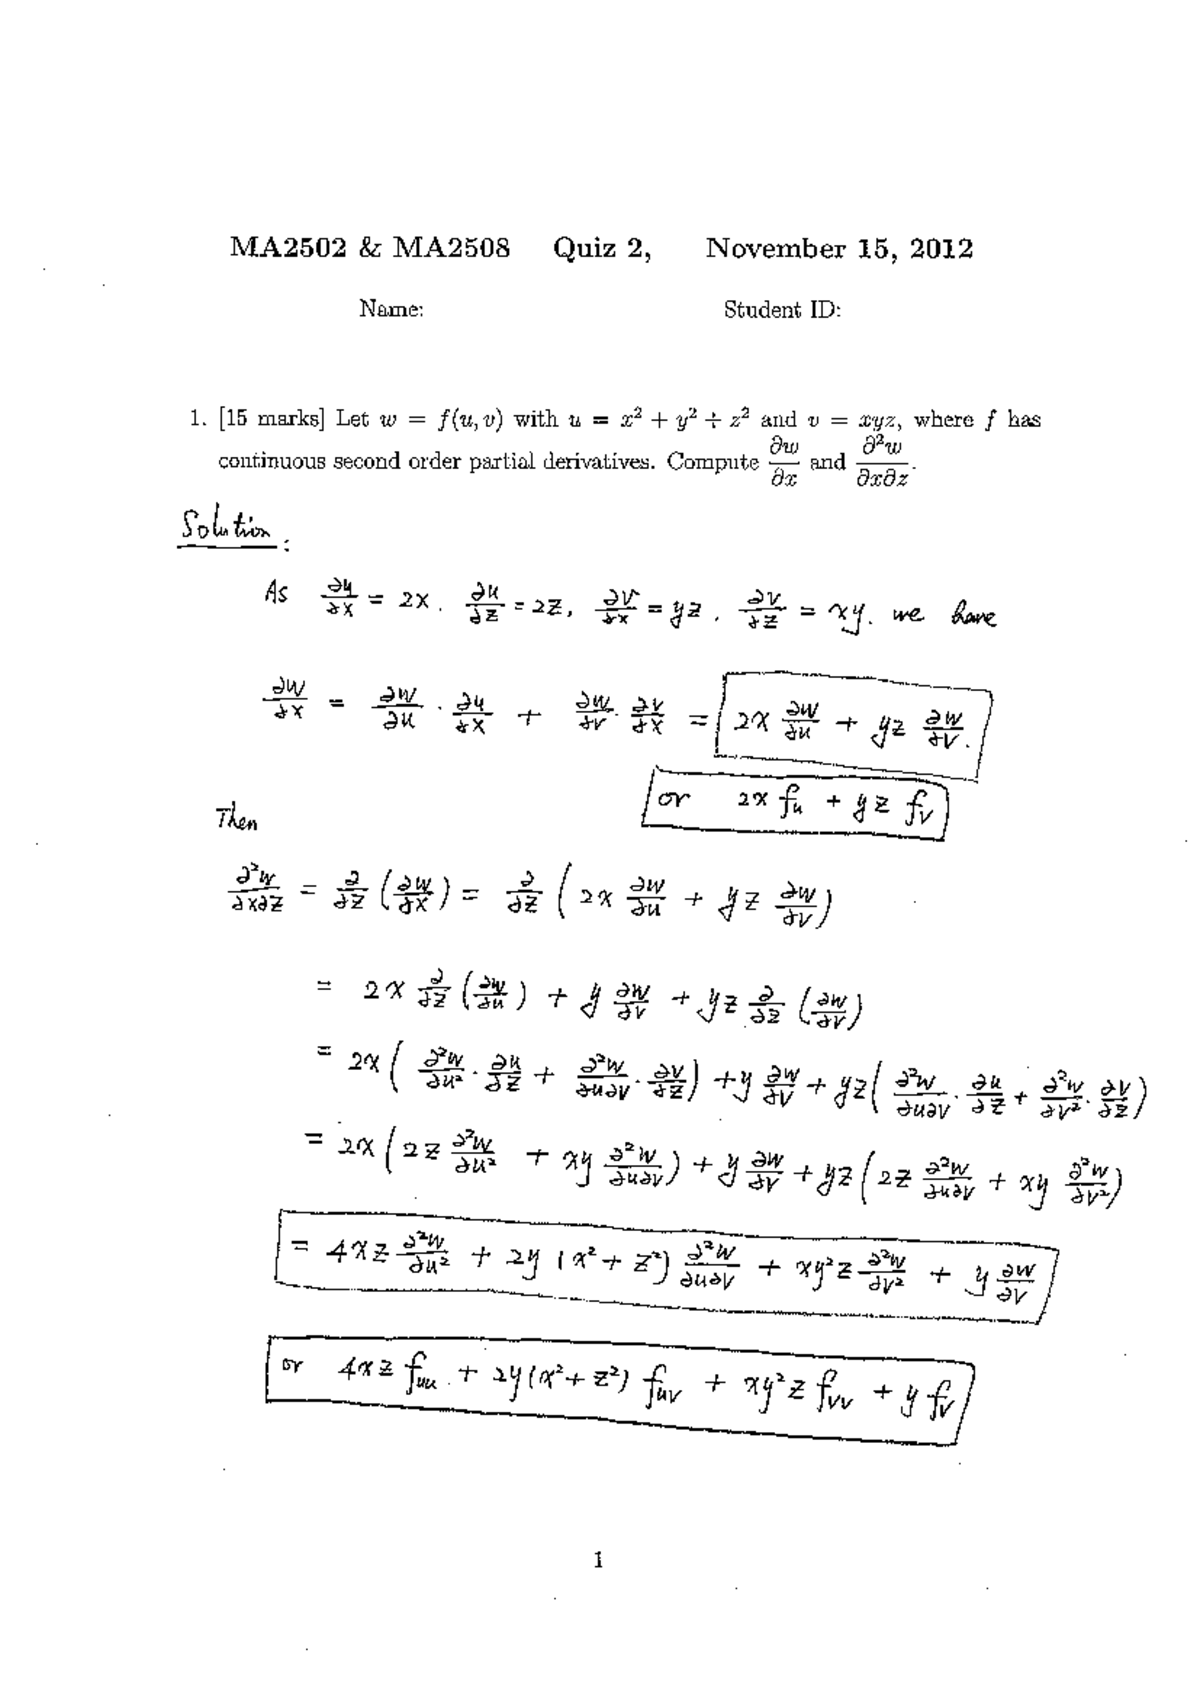 MA2502 & MA2508 Quiz 2, November 15, 2012
Name: Student ID:
1. [15 marks] Let w = f(u, v) with u = x² + y² + z² and v = xyz, where f has
continuous second order partial derivatives. Compute ∂w/∂x and ∂²w/∂x∂z.
Solution:
As ∂u/∂x = 2x. ∂u/∂z = 2z, ∂v/∂x = yz. ∂v/∂z = xy. we have
∂w/∂x = ∂w/∂u · ∂u/∂x + ∂w/∂v · ∂v/∂x = 2x ∂w/∂u + yz ∂w/∂v.
or 2x f_u + yz f_v
Then
∂²w/∂x∂z = ∂/∂z (∂w/∂x) = ∂/∂z (2x ∂w/∂u + yz ∂w/∂v)
= 2x ∂/∂z (∂w/∂u) + y ∂w/∂v + yz ∂/∂z (∂w/∂v)
= 2x (∂²w/∂u² · ∂u/∂z + ∂²w/∂u∂v · ∂v/∂z) + y ∂w/∂v + yz (∂²w/∂u∂v · ∂u/∂z + ∂²w/∂v² · ∂v/∂z)
= 2x (2z ∂²w/∂u² + xy ∂²w/∂u∂v) + y ∂w/∂v + yz (2z ∂²w/∂u∂v + xy ∂²w/∂v²)
= 4xz ∂²w/∂u² + 2y (x² + z²) ∂²w/∂u∂v + xy²z ∂²w/∂v² + y ∂w/∂v
or 4xz f_uu + 2y(x² + z²) f_uv + xy²z f_vv + y f_v
1